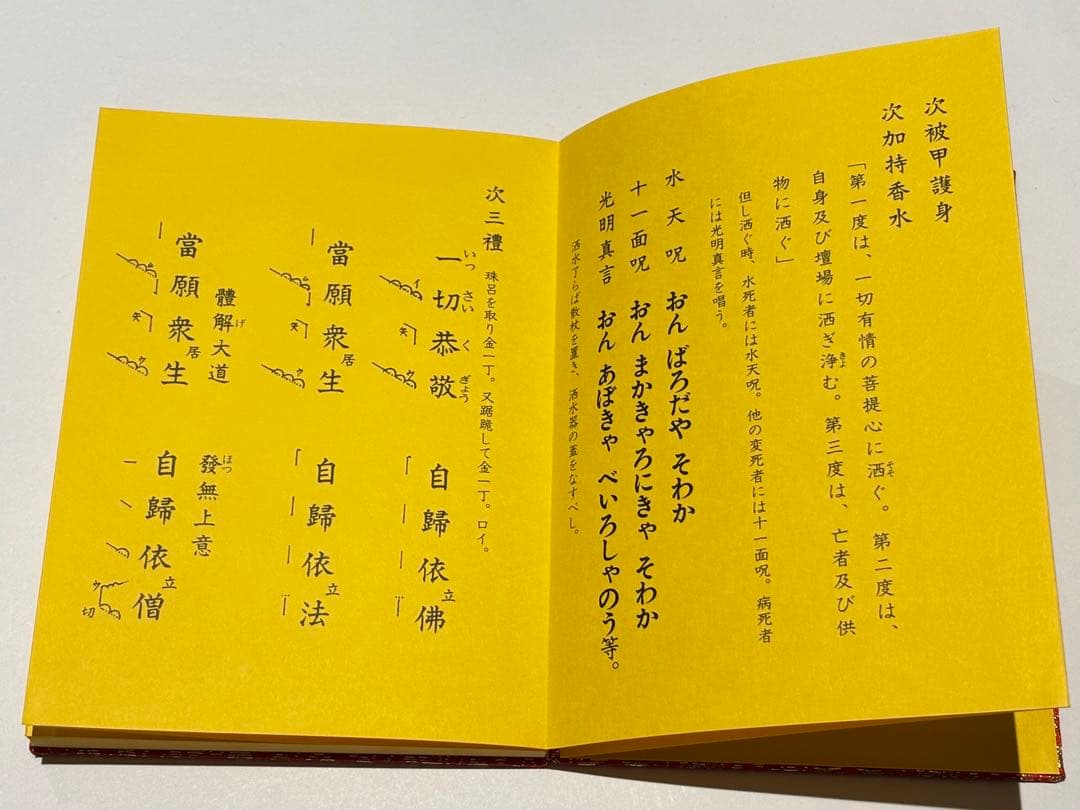 次被甲護身
次加持香水
「第一度は、一切有情の菩提心に洒ぐ。第二度は、
そそ
自身及び壇場に洒ぎ浄む。第三度は、亡者及び供
きよ
物に洒ぐ」
但し洒ぐ時、水死者には水天呪。他の変死者には十一面呪。病死者
には光明真言を唱う。
水天呪 おん ばろだや そわか
十一面呪 おん まかきゃろにきゃ そわか
光明真言 おん あぼきゃ べいろしゃのう等。
洒水了らば散杖を置き、洒水器の蓋をなすべし。
次三禮 珠呂を取り金一丁。又踞跪して金一丁。ロイ。
一切恭敬 自歸依佛
いっ さい く ぎょう 立
イ 矢 ウ
當願衆生 自歸依法
居 立
矢 ウ
體解大道 發無上意
げ ほつ
當願衆生 自歸依僧
居 立
矢 ウ ウ 切